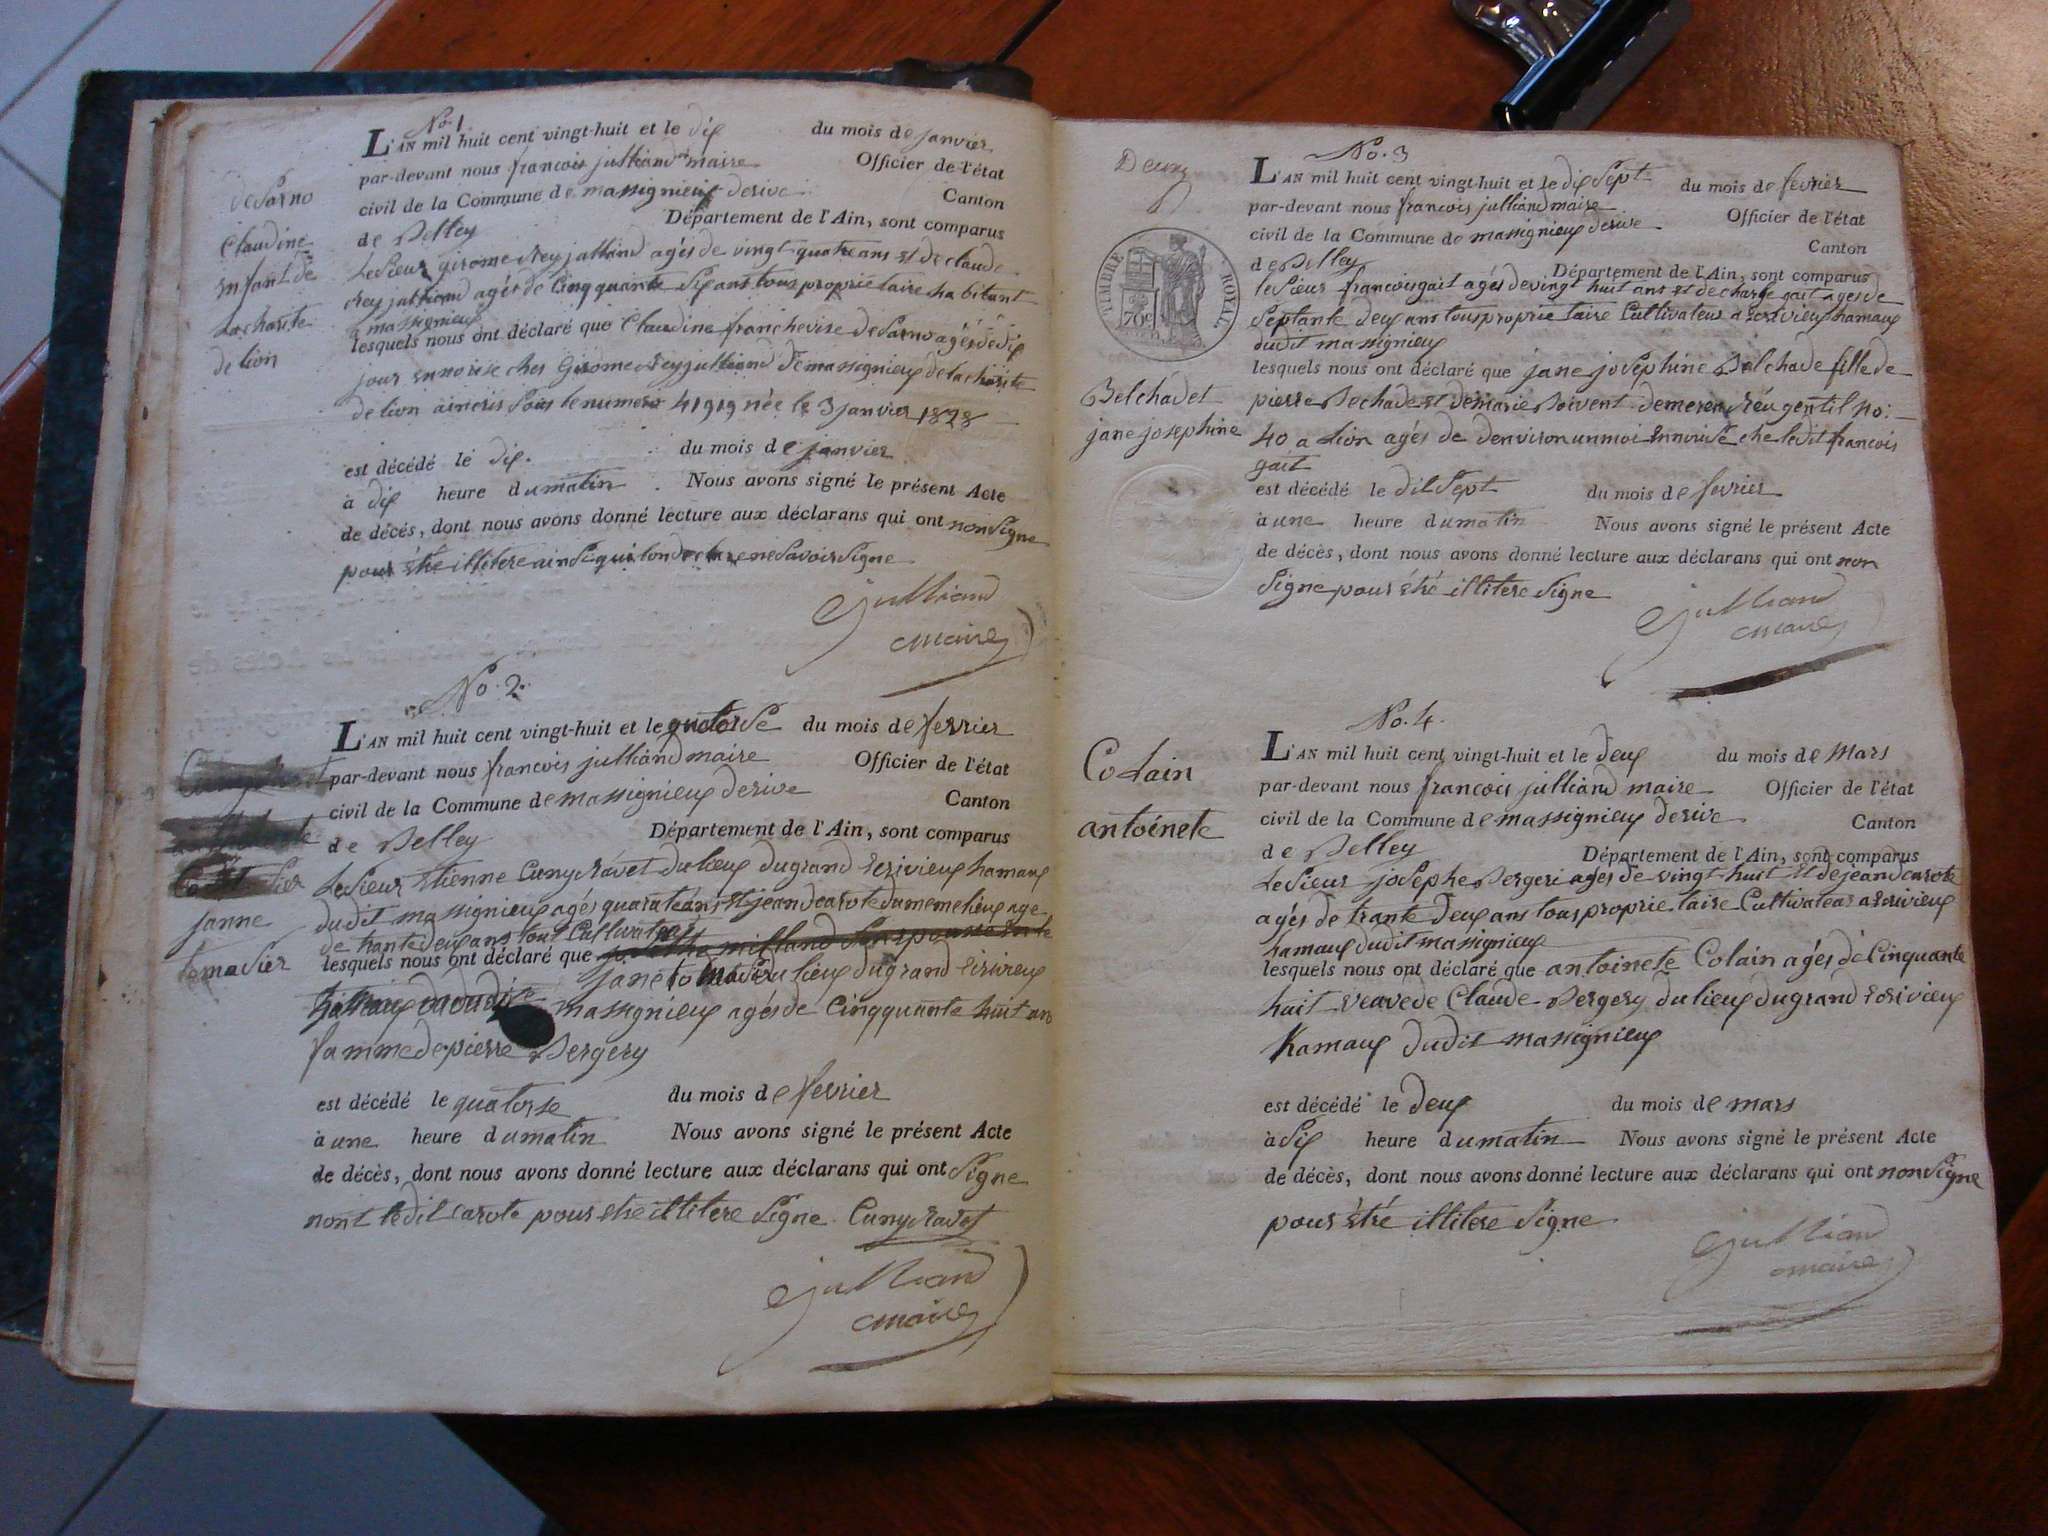 No. 1
L'AN mil huit cent vingt-huit et le dix du mois de janvier
par-devant nous francois julliand maire Officier de l'état
civil de la Commune de massignieux derive Canton
de Belley Département de l'Ain, sont comparus
Le Sieur girome Rey julliand agés de vingt quatre ans et de claude
Rey julliand agés de Cinqquante Six ans tous proprietaire habitant
a massignieux
lesquels nous ont déclaré que Claudine franchevise de Sarno agés de dix
jour ennorise ches Girome Rey julliand de massignieux de la charite
de lion aincris Sous le numero 41919 née le 3 janvier 1828
est décédé le dix. du mois de janvier
à dix heure du matin Nous avons signé le présent Acte
de décés, dont nous avons donné lecture aux déclarans qui ont non Signe
pour étre illitere ainsi qui lon declare ne Savoir Signe
julliand
maire
de Sarno
Claudine
enfant de
La charite
de lion
No. 2.
L'AN mil huit cent vingt-huit et le quatorse du mois de fevrier
par-devant nous francois julliand maire Officier de l'état
civil de la Commune de massignieux derive Canton
de Belley Département de l'Ain, sont comparus
Le Sieur Etienne Cuny Ravet du lieux du grand Ecrivieux hamaux
dudit massignieux agés quarate ans et jean carote du meme lieux age
de trante deux ans tout Cultivateur
lesquels nous ont déclaré que
jane tomasier du lieux du grand Ecrivieux
hamaux dudit massignieux agés de Cinqquante huit ans
famme de pierre Bergery
est décédé le quatorse du mois de fevrier
à une heure du matin Nous avons signé le présent Acte
de décès, dont nous avons donné lecture aux déclarans qui ont Signe
nont ledit carote pour etre illitere Signe. Cuny Ravet
julliand
maire
janne
tomasier
Deux
TIMBRE ROYAL
70c
No. 3
L'AN mil huit cent vingt-huit et le dix Sept du mois de fevrier
par-devant nous francois julliand maire Officier de l'état
civil de la Commune de massignieux derive Canton
de Belley Département de l'Ain, sont comparus
le Sieur francois gait agés de vingt huit ans et de charle gait agés de
Septante deux ans tous proprietaire Cultivateur a Ecrivieux hamaux
dudit massignieux
lesquels nous ont déclaré que jane josephine Belchade fille de
pierre Bechade et de marie Boivent demeren Réu gentil no.
40 a Lion agés de denviron un moi ennorise che ledit francois
gait
est décédé le dix Sept du mois de fevrier
à une heure du matin Nous avons signé le présent Acte
de décès, dont nous avons donné lecture aux déclarans qui ont non
Signe pour étré illitere Signe
julliand
maire
Belchadet
jane josephine
No. 4.
L'AN mil huit cent vingt-huit et le deux du mois de mars
par-devant nous francois julliand maire Officier de l'état
civil de la Commune de massignieux derive Canton
de Belley Département de l'Ain, sont comparus
Le Sieur josephe Bergeri agés de vingt huit et de jean carote
agés de tranté deux ans tous proprietaire Cultivatear a Ecrivieux
hamaux dudit massignieux
lesquels nous ont déclaré que antoinete Colain agés de Cinquante
huit veave de Claude Bergery du lieux du grand Ecrivieux
hamaux dudit massignieux
est décédé le deux du mois de mars
à Six heure du matin Nous avons signé le présent Acte
de décès, dont nous avons donné lecture aux déclarans qui ont non Signe
pour étré illitere Signe
julliand
maire
Colain
antoinete